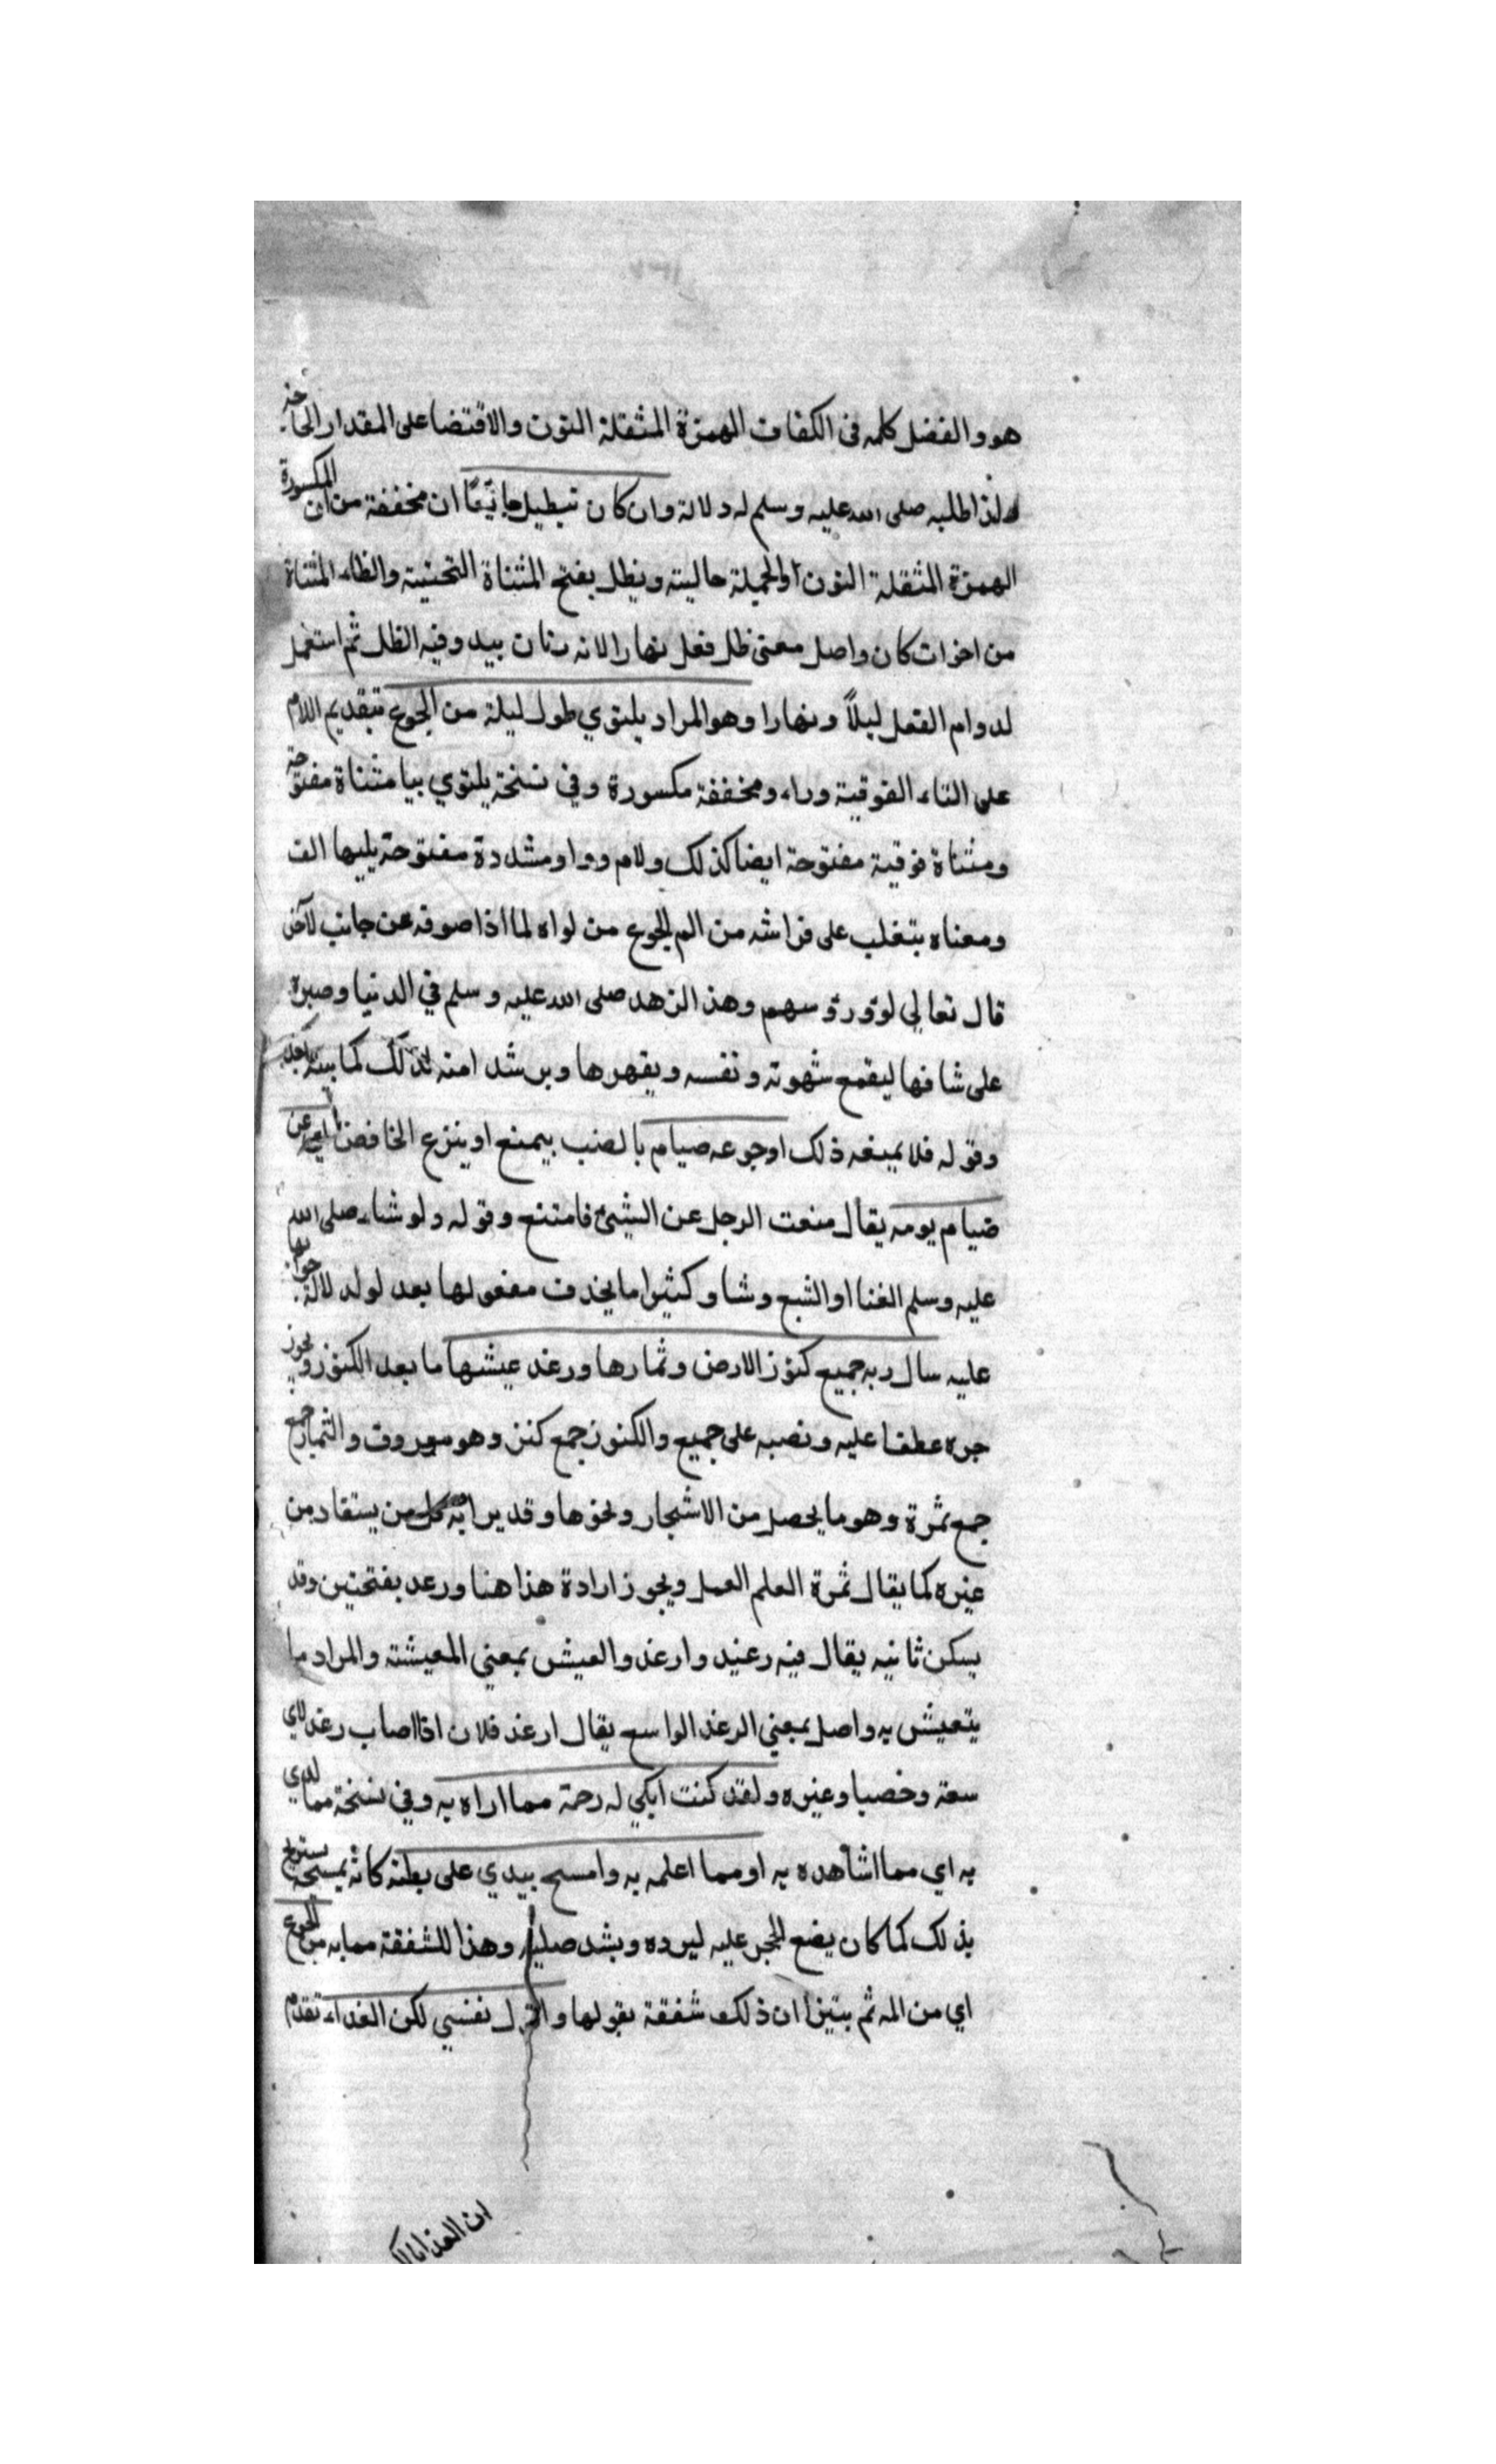 هو والفضل كله فى الكفاف الهمزة المثقلة النون والاقتضا على المقدار الحاجة
ولذا طلبه صلى الله عليه وسلم له دلالة وان كان ليظل جائعا ان مخففة من ان المكسورة
الهمزة المثقلة النون اوالجملة حالية ويظل بفتح المثناة التحتية والظاء المثناة
من اخوات كان واصل معنى ظل فعل نهارا لانه بيدو فيه الظل ثم استعمل
لدوام الفعل ليلاً ونهارا وهو المراد يلتوي طول ليلة من الجوع بتقديم اللام
على التاء الفوقية وراء ومخففة مكسورة وفي نسخة يلتوي بيا مثناة مفتوحة
ومثناة فوقية مفتوحة ايضا كذلك ولام وواو مشددة مفتوحة يليها الف
ومعناه يتغلب على فراشه من الم الجوع من لواه لما اذا صوفه عن جانب لآخر
قال تعالي لوو رؤسهم وهذا لزهد صلى الله عليه وسلم في الدنيا وصبره
على شافها ليقمع شهوته ونفسه ويقهرها ويرشد امته لذلك كما بينه
وقوله فلا يمنعه ذلك اوجوعه صيام بالنصب بيمنع او ينزع الخافض اي عن
صيام يومه يقال منعت الرجل عن الشيئ فامتنع وقوله ولو شاء صلى الله
عليه وسلم الغنا او الشبع وشا وكثيرا ما يحذف مفعولها بعد لو لدلالة جوابها
عليه سال ربه جميع كنوز الارض وثمارها ورغد عيشها ما بعد الكنوز ويجوز
جره عطفا عليه ونصبه على جميع والكنوز جمع كنز وهو معروف والثمار جمع
جمع ثمرة وهو ما يحصل من الاشجار ونحوها وقد يراد به كل من يستفاد من
غيره كما يقال ثمرة العلم العمل ويجوز ارادة هذا هنا ورغد بفتحتين وقد
يسكن ثانيه يقال فيه رغيد وارغد والعيش بمعني المعيشة والمراد ما
يتعيش به واصل بمعني الرغد الواسع يقال ارغد فلان اذا اصاب رغدا اي
سعة وخصبا وغيره ولقد كنت ابكي له رحمة مما اراه به وفي نسخة مما لدي
به اي مما اشاهده به او مما اعلمه به وامسح بيدي على بطنه كانه يمسحه يستريح
بذلك كما كان يضع الحجر عليه ليرده ويشد صلبه وهذا للشفقة مما به من الجوع
اي من المه ثم بيتنا ان ذلك شفقة بقولها واقول نفسي لكن الفداء تقدم
ان الفدا